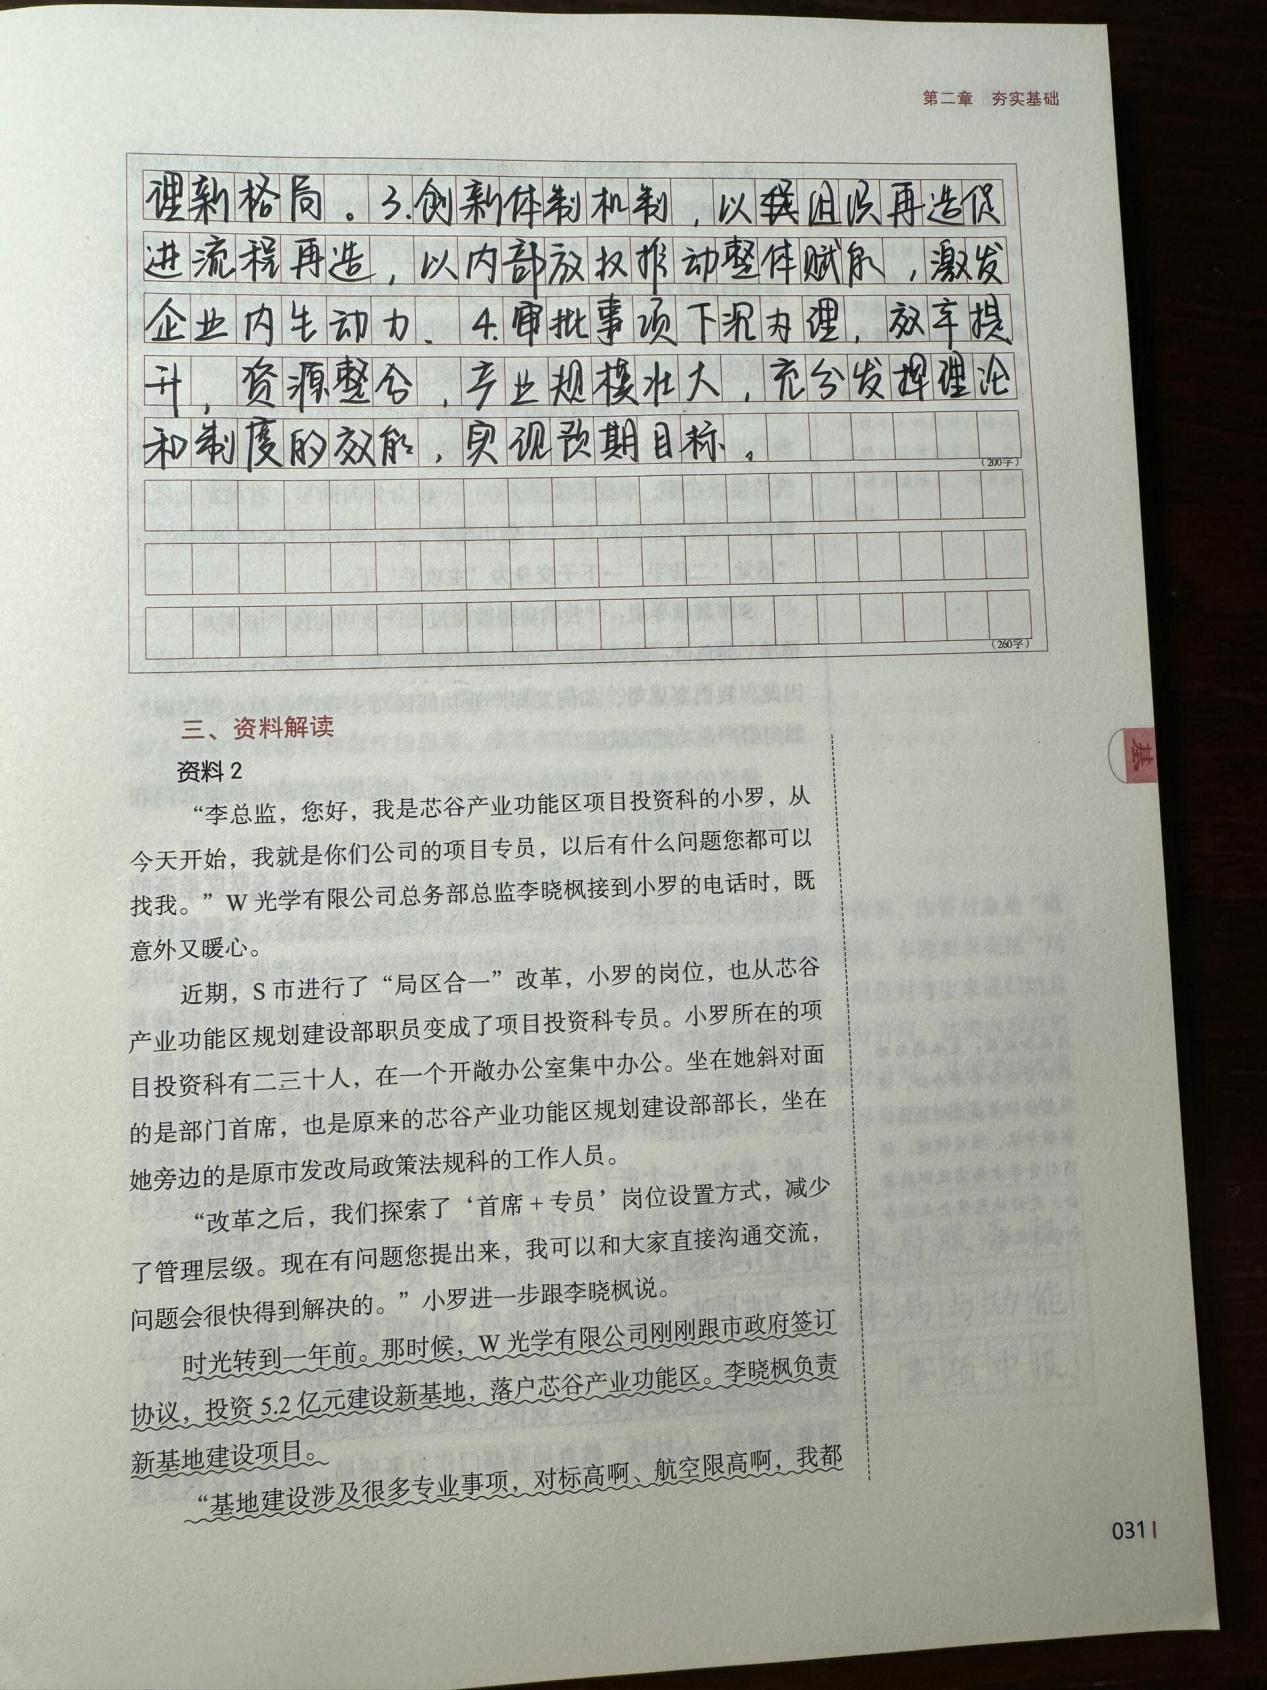 第二章 夯实基础
理新格局。3.创新体制机制，以组织再造促
进流程再造，以内部放权推动整体赋能，激发
企业内生动力、4.审批事项下沉办理，效率提
升，资源整合，产业规模壮大，充分发挥理论
和制度的效能，实现预期目标。
（200字）
（260字）
三、资料解读
资料2
“李总监，您好，我是芯谷产业功能区项目投资科的小罗，从
今天开始，我就是你们公司的项目专员，以后有什么问题您都可以
找我。”W光学有限公司总务部总监李晓枫接到小罗的电话时，既
意外又暖心。
近期，S市进行了“局区合一”改革，小罗的岗位，也从芯谷
产业功能区规划建设部职员变成了项目投资科专员。小罗所在的项
目投资科有二三十人，在一个开敞办公室集中办公。坐在她斜对面
的是部门首席，也是原来的芯谷产业功能区规划建设部部长，坐在
她旁边的是原市发改局政策法规科的工作人员。
“改革之后，我们探索了‘首席+专员’岗位设置方式，减少
了管理层级。现在有问题您提出来，我可以和大家直接沟通交流，
问题会很快得到解决的。”小罗进一步跟李晓枫说。
时光转到一年前。那时候，W光学有限公司刚刚跟市政府签订
协议，投资5.2亿元建设新基地，落户芯谷产业功能区。李晓枫负责
新基地建设项目。
“基地建设涉及很多专业事项，对标高啊、航空限高啊，我都
基
031